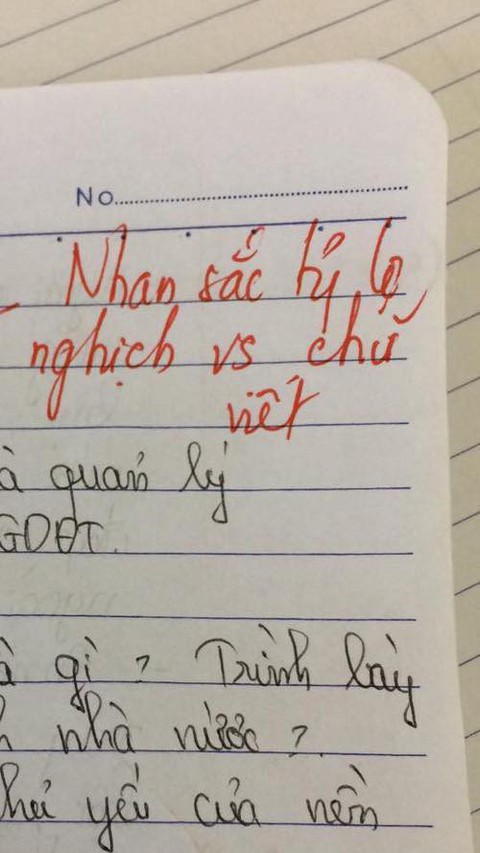 No
- Nhan sắc tỷ lệ
nghịch vs chữ
viết
à quản lý
GDĐT.
à gì ? Trình bày
h nhà nước ?
hủ yếu của nền